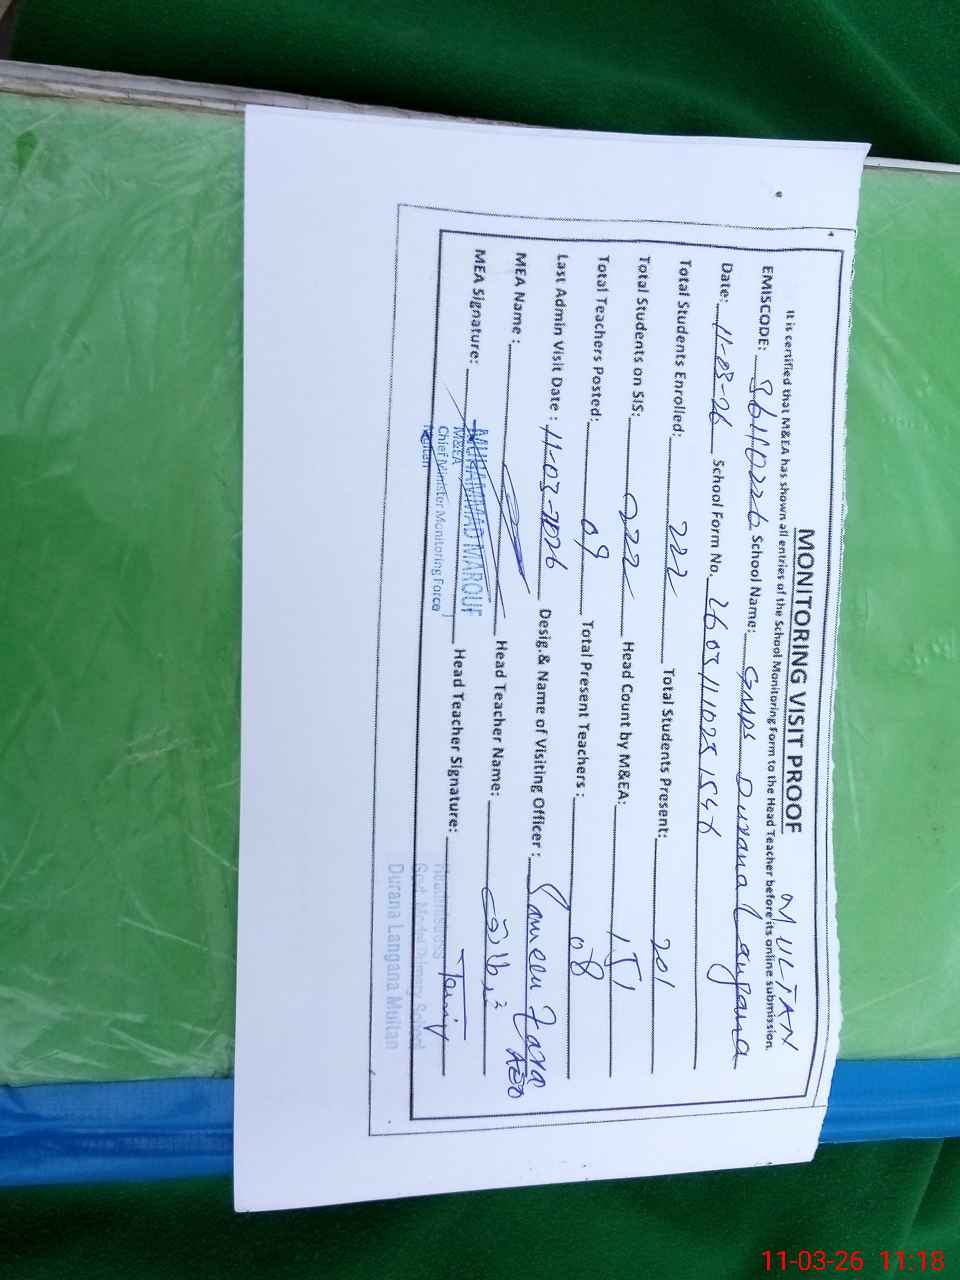 MONITORING VISIT PROOF MULTAN
It is certified that M&EA has shown all entries of the School Monitoring Form to the Head Teacher before its online submission.
EMISCODE: 36110226 School Name: GMPS Durana Langana
Date: 11-03-26 School Form No.
Total Students Enrolled: 222 Total Students Present: 201
Total Students on SIS: 222 Head Count by M&EA: 151
Total Teachers Posted: 09 Total Present Teachers : 08
Last Admin Visit Date : 11-03-2026 Desig.& Name of Visiting Officer : Zara AEO
MEA Name : Head Teacher Name:
MEA Signature: Head Teacher Signature:
MUHAMMAD MAROUF
M&EA
Chief Minister Monitoring Force
Multan
Headmistress
Govt. Model Primary School
Durana Langana Multan
11-03-26 11:18